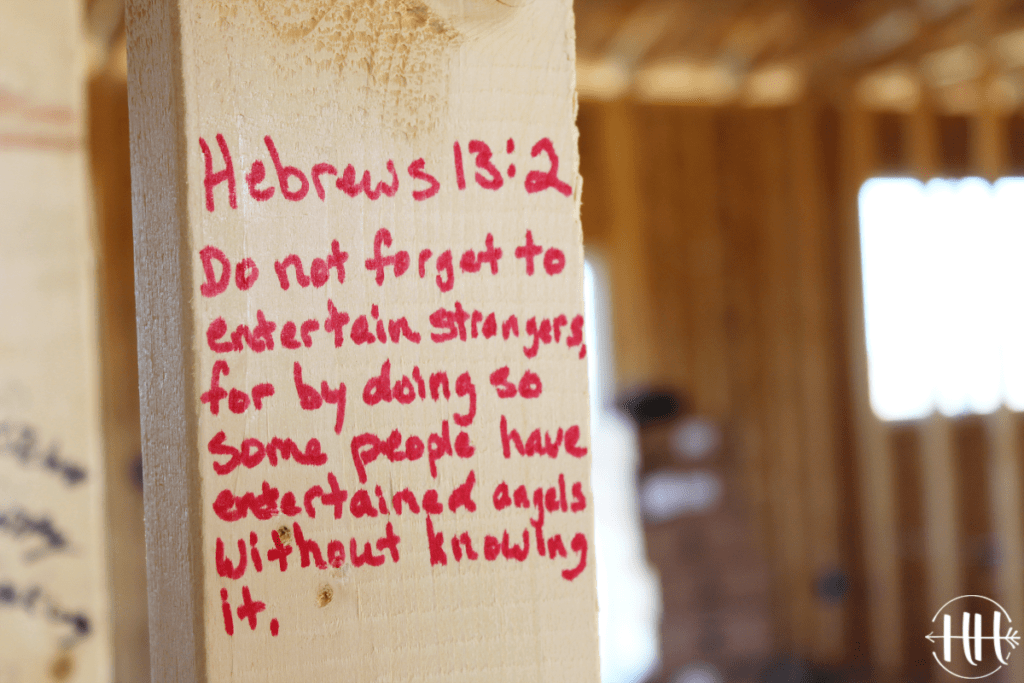 Hebrews 13:2
Do not forget to
entertain strangers,
for by doing so
some people have
entertained angels
without knowing
it.
HH